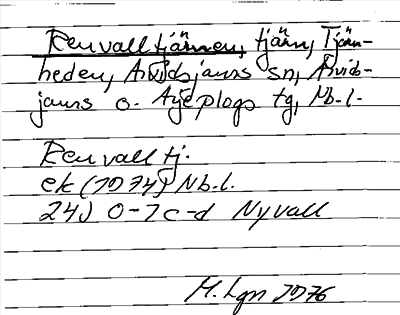 Renvalltjärnen, tjärn, Tjärn-
heden, Arvidsjaurs sn, Arvids-
jaurs o. Arjeplogs tg, Nb.l.
Renvalltj.
ek (1974) Nb.l.
24J 0-1 c-d Nyvall
M. Lgn 1976